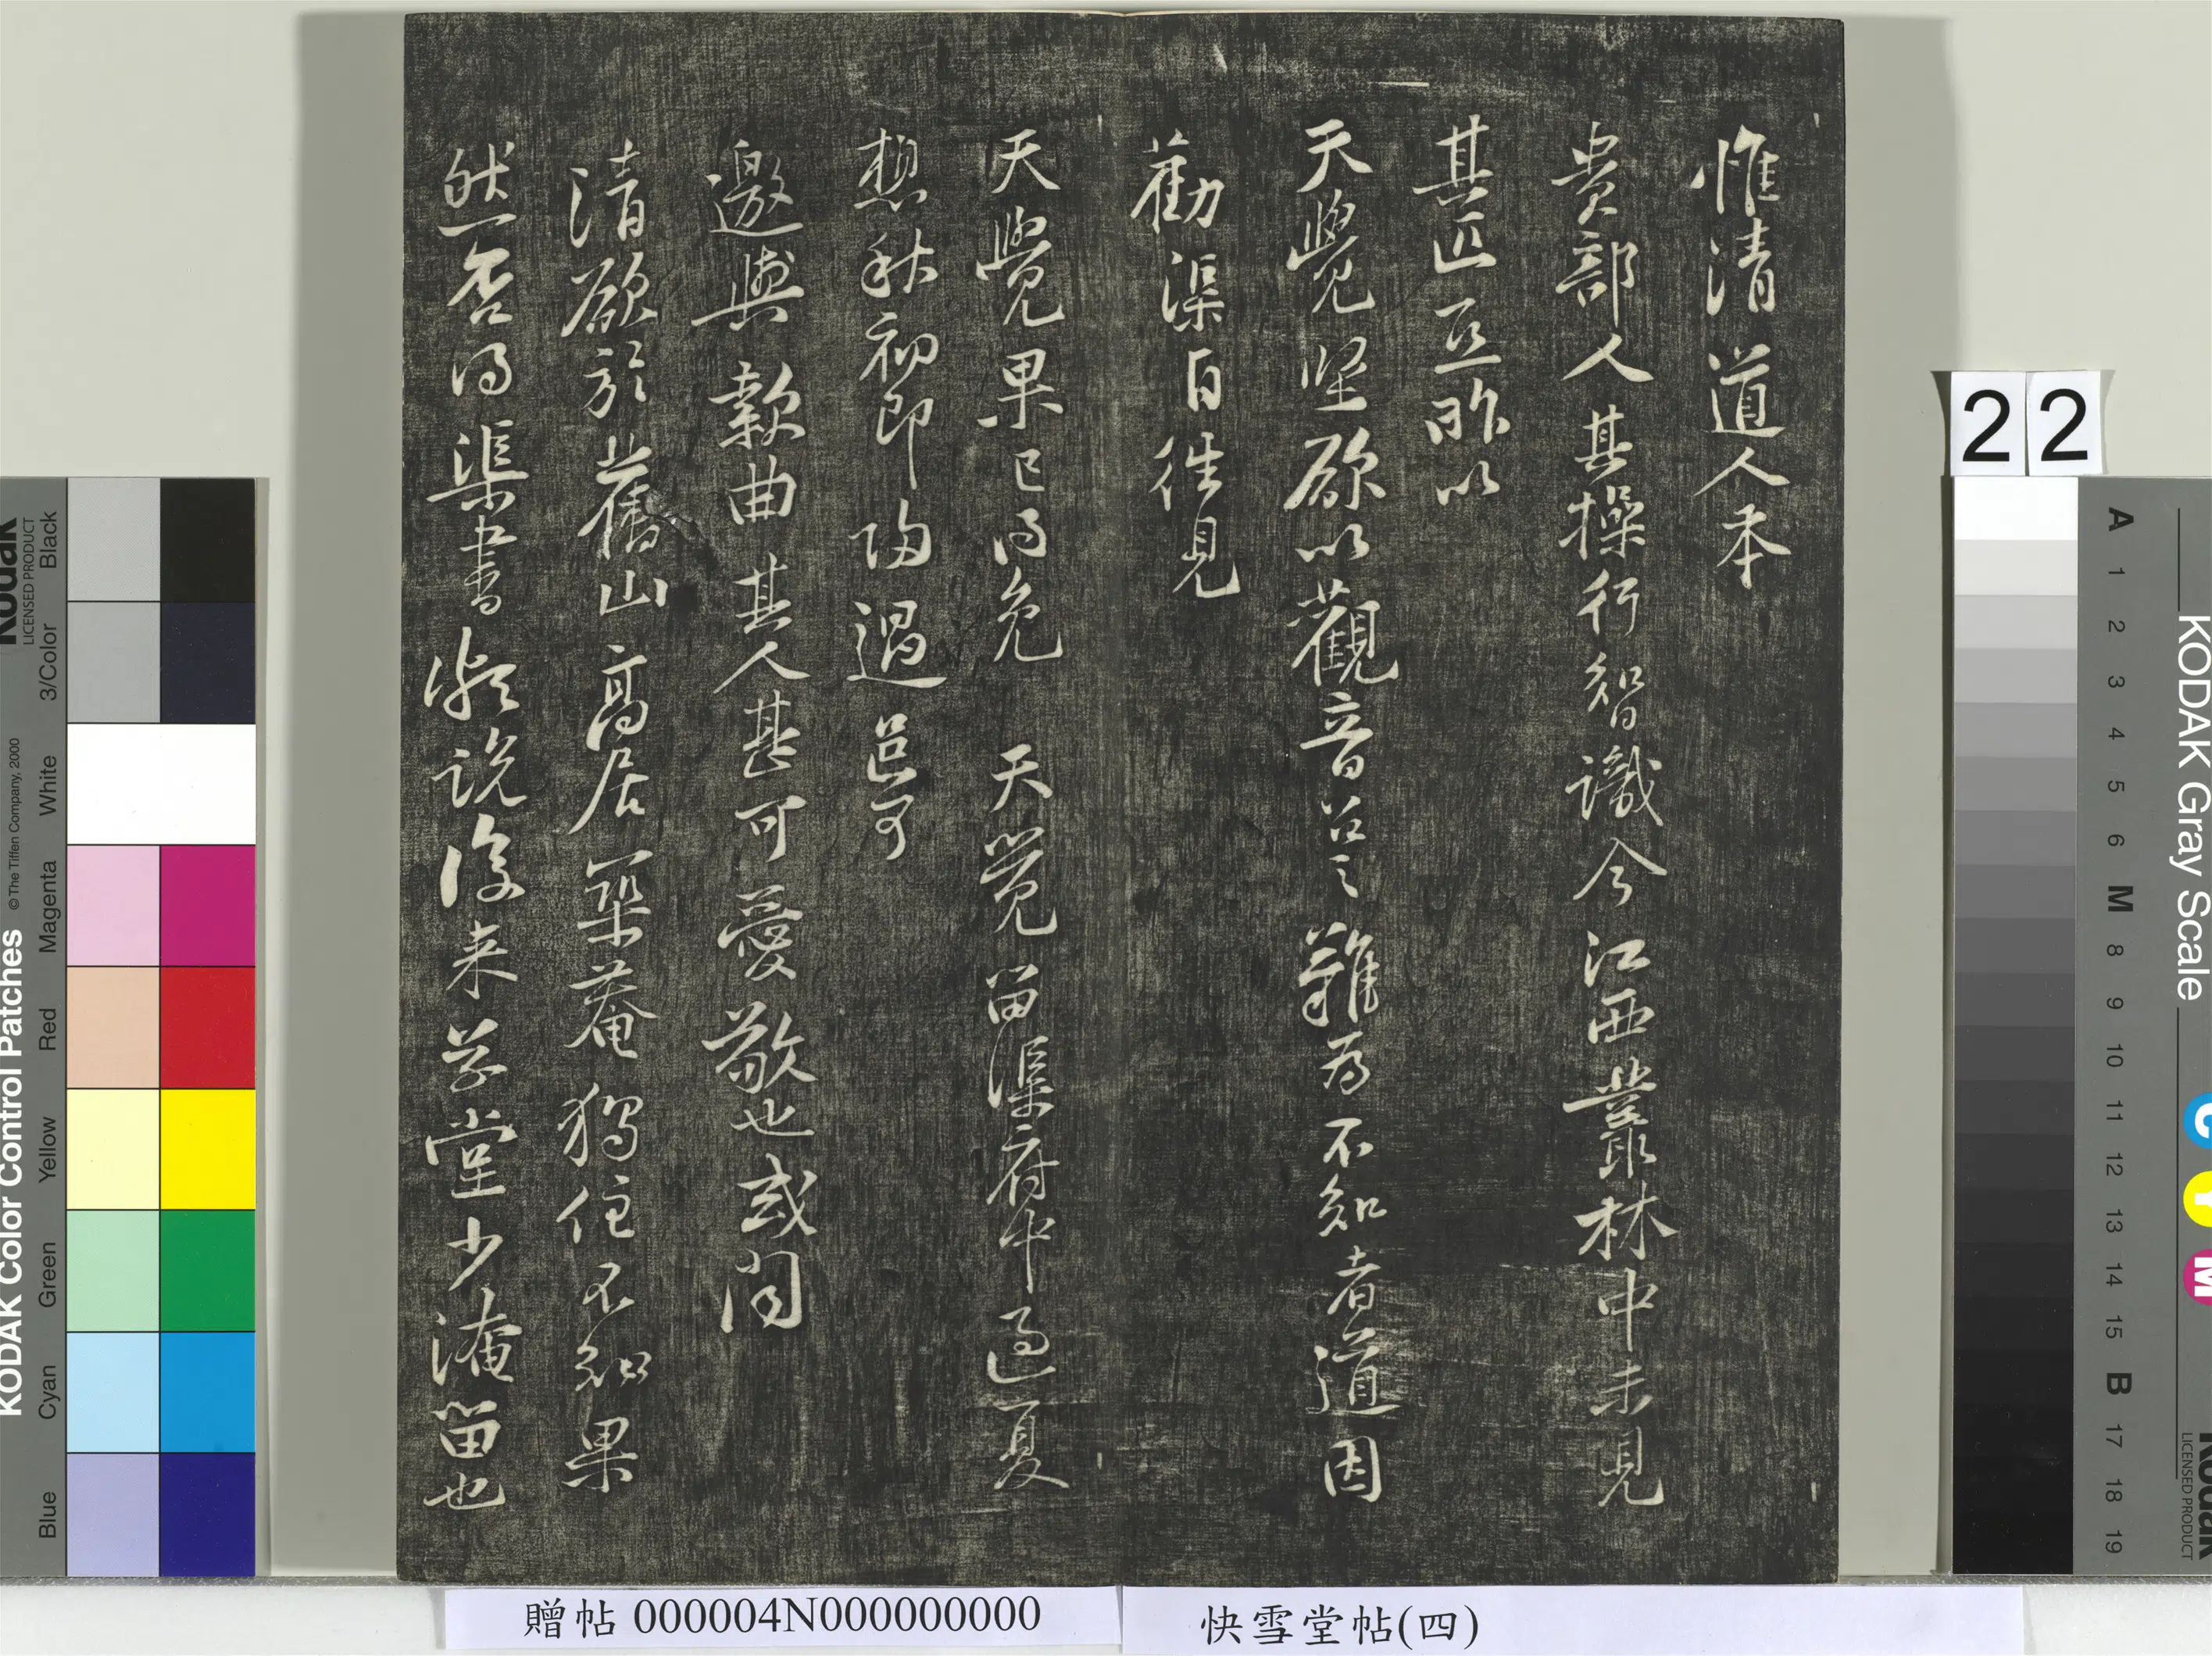 惟清道人本
貴部人其操行智識今江西叢林中未見
其匹亟昨以
天覺堅欲以觀音召之難為不知者道因
勸渠自往見
天覺果已得免天覺留渠府中過夏
想秋初即歸過邑可
邀與款曲其人甚可愛敬也或聞
清欲於舊山高居築菴獨住不知果
然否得渠書頗說後來草堂少淹留也
22
贈帖 000004N000000000
快雪堂帖(四)
KODAK Color Control Patches
© The Tiffen Company, 2000
Kodak
LICENSED PRODUCT
Black
3/Color
White
Magenta
Red
Yellow
Green
Cyan
Blue
KODAK Gray Scale
C Y M
Kodak
LICENSED PRODUCT
A 1 2 3 4 5 6 M 8 9 10 11 12 13 14 15 B 17 18 19